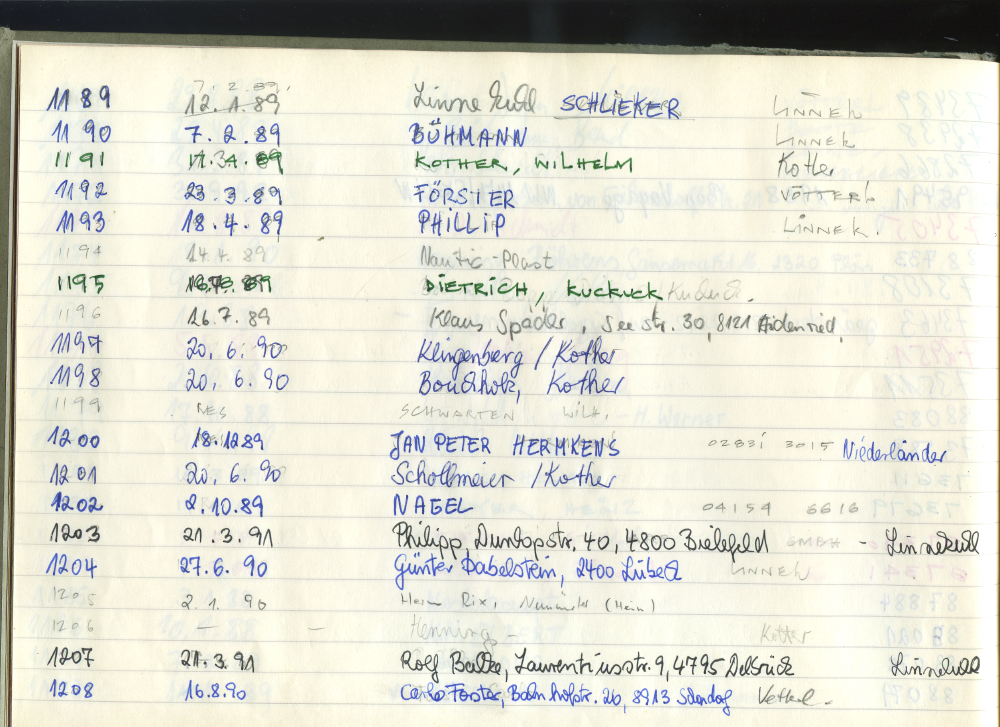 1189 12.1.89 7.2.89. Linnekuhl SCHLIEKER LINNEK
1190 7.2.89 BÜHMANN LINNEK
1191 89 KOTHER, WILHELM Kother
1192 23.3.89 FÖRSTER VÖTTERL
1193 18.4.89 PHILLIP LINNEK.
1194 14.4.89 Nautic-Plast
1195 89 DIETRICH, KUCKUCK
1196 26.7.89 Klaus Späder, Seestr. 30, 8121 Aidenried,
1197 20.6.90 Klingenberg / Kother
1198 20.6.90 Bouchholz, Kother
1199 RES SCHWARTEN WILH.
1200 18.12 89 JAN PETER HERMKENS 02831 3015 Niederländer
1201 20.6.90 Schollmeier / Kother
1202 2.10.89 NAGEL 04154 6616
1203 21.3.91 Philipp, Dunlopstr. 40, 4800 Bielefeld GMBH - Linnekuhl
1204 27.6.90 Günter Dabelstein, 2400 Lübeck LINNEK
1205 2.1.90 Herrn Rix, (Hein)
1206 – – Henning – Kotter
1207 21.3.91 Rolf Balke, Laurentiusstr. 9, 4795 Delbrück Linnekuhl
1208 16.8.90 Carlo Forster, Bahnhofstr. 26, 8913 Vetterl.